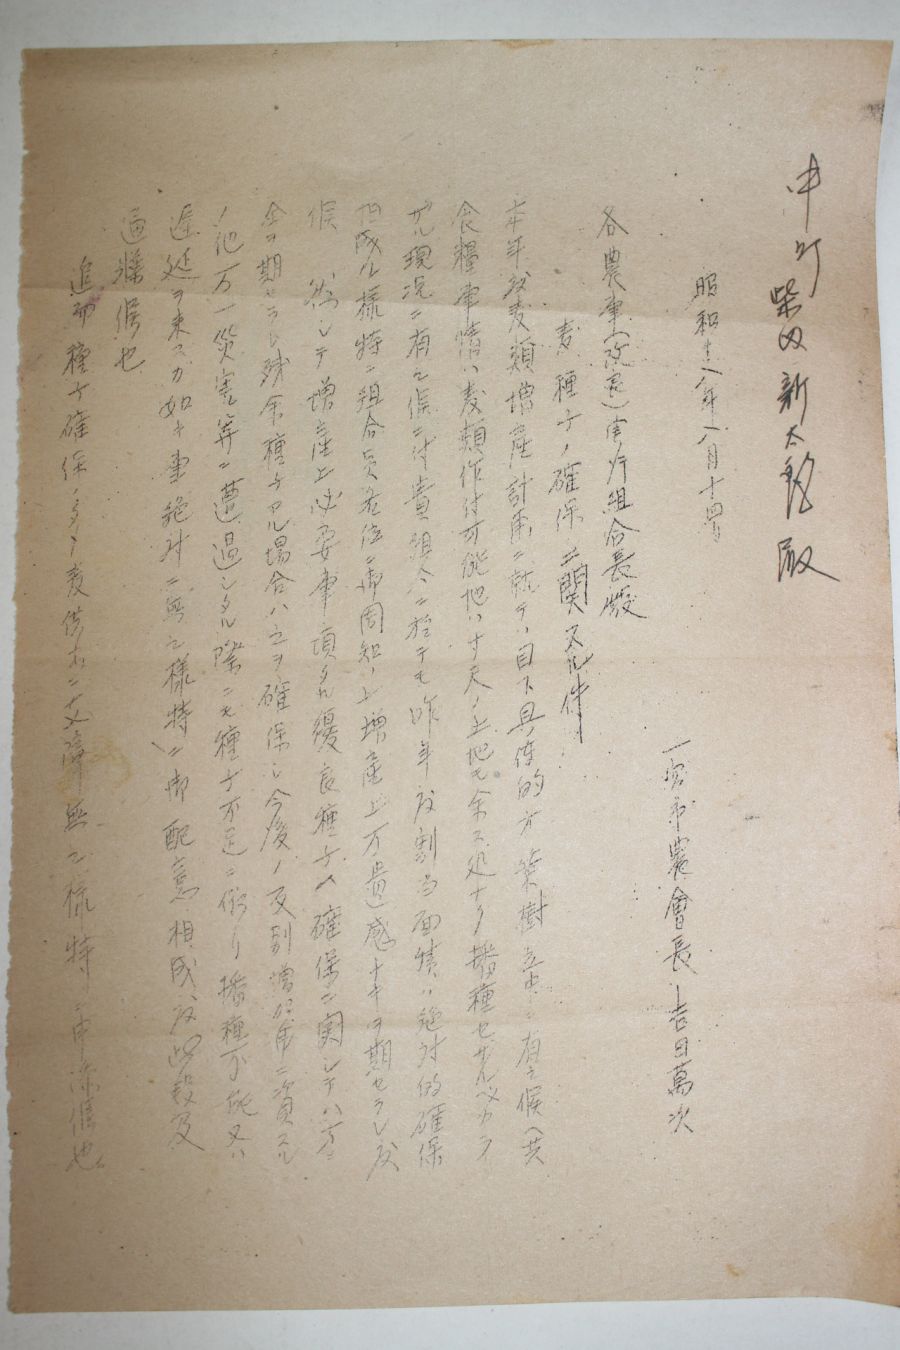 中町
柴田新太郎殿
昭和十八年八月十四日
一宮市農會長 吉田萬次
各農事(改良)実行組合長殿
麦種子ノ確保ニ関スル件
本年度麦類増産計画ニ就テハ目下具体的方策樹立中ニ有之候ヘ共
食糧事情ハ麦類作付可能地ハ寸尺ノ土地モ余ス処ナク播種セザルベカラ
ザル現況ニ有之候ニ付貴組合ニ於テモ昨年度割当面積ハ絶対的確保
相成ル様特ニ組合員各位ニ御周知ノ上増産上万遺憾ナキヲ期セラレ度
候 然シテ増産上必要事項タル優良種子ノ確保ニ関シテハ万
全ヲ期セラレ残余種子アル場合ハ之ヲ確保シ今後ノ反別増加等ニ資スル
ノ他万一災害等ニ遭遇シタル際ニモ種子不足ニ依リ播種不能又ハ
遅延ヲ来スガ如キ事絶対ニ無之様特ニ御配意相成度此段及
通牒候也
追而種子確保ノタメ麦供出ニ支障無之様特ニ申添候也